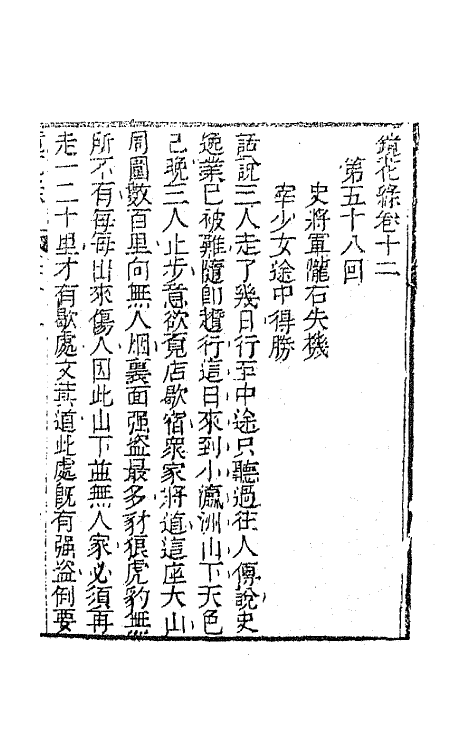 鏡花緣卷十二
第五十八回
史將軍隴右失機
宰少女途中得勝
話說三人走了幾日行至中途只聽過往人傳說史
逸業已被難隨卽趲行這日來到小瀛洲山下天色
已晚三人止步意欲覓店歇宿衆家將道這座大山
周圍數百里向無人烟裏面强盜最多豺狼虎豹無
所不有每每出來傷人因此山下並無人家必須再
走一二十里才有歇處文芸道此處既有强盜倒要